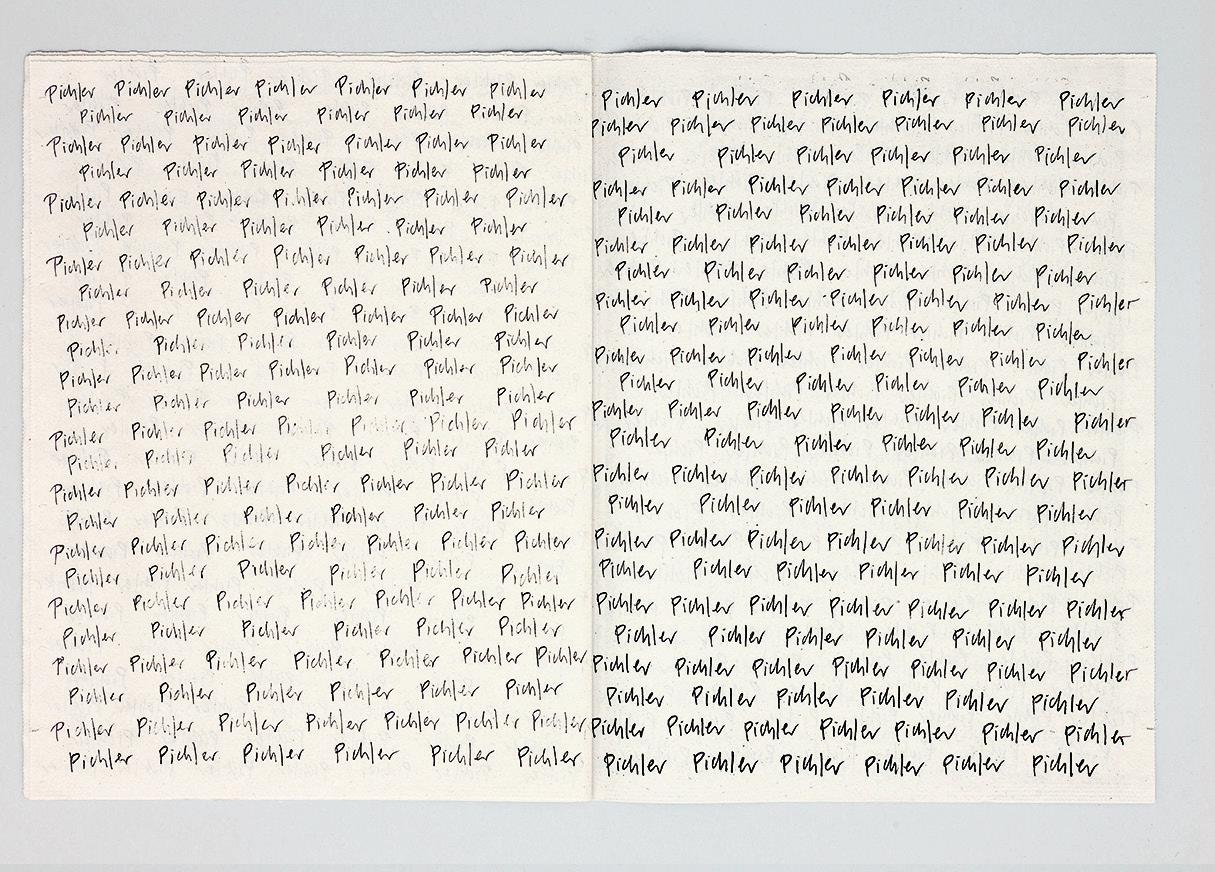 Pichler Pichler Pichler Pichler Pichler Pichler Pichler
Pichler Pichler Pichler Pichler Pichler Pichler
Pichler Pichler Pichler Pichler Pichler Pichler Pichler
Pichler Pichler Pichler Pichler Pichler Pichler
Pichler Pichler Pichler Pichler Pichler Pichler Pichler
Pichler Pichler Pichler Pichler Pichler Pichler
Pichler Pichler Pichler Pichler Pichler Pichler Pichler
Pichler Pichler Pichler Pichler Pichler Pichler
Pichler Pichler Pichler Pichler Pichler Pichler Pichler
Pichler Pichler Pichler Pichler Pichler Pichler
Pichler Pichler Pichler Pichler Pichler Pichler Pichler
Pichler Pichler Pichler Pichler Pichler Pichler
Pichler Pichler Pichler Pichler Pichler Pichler Pichler
Pichler Pichler Pichler Pichler Pichler Pichler
Pichler Pichler Pichler Pichler Pichler Pichler Pichler
Pichler Pichler Pichler Pichler Pichler Pichler
Pichler Pichler Pichler Pichler Pichler Pichler Pichler
Pichler Pichler Pichler Pichler Pichler Pichler
Pichler Pichler Pichler Pichler Pichler Pichler Pichler
Pichler Pichler Pichler Pichler Pichler Pichler
Pichler Pichler Pichler Pichler Pichler Pichler Pichler
Pichler Pichler Pichler Pichler Pichler Pichler
Pichler Pichler Pichler Pichler Pichler Pichler Pichler
Pichler Pichler Pichler Pichler Pichler Pichler
Pichler Pichler Pichler Pichler Pichler Pichler
Pichler Pichler Pichler Pichler Pichler Pichler Pichler
Pichler Pichler Pichler Pichler Pichler Pichler
Pichler Pichler Pichler Pichler Pichler Pichler Pichler
Pichler Pichler Pichler Pichler Pichler Pichler
Pichler Pichler Pichler Pichler Pichler Pichler Pichler
Pichler Pichler Pichler Pichler Pichler Pichler
Pichler Pichler Pichler Pichler Pichler Pichler Pichler
Pichler Pichler Pichler Pichler Pichler Pichler
Pichler Pichler Pichler Pichler Pichler Pichler Pichler
Pichler Pichler Pichler Pichler Pichler Pichler
Pichler Pichler Pichler Pichler Pichler Pichler Pichler
Pichler Pichler Pichler Pichler Pichler Pichler
Pichler Pichler Pichler Pichler Pichler Pichler Pichler
Pichler Pichler Pichler Pichler Pichler Pichler
Pichler Pichler Pichler Pichler Pichler Pichler Pichler
Pichler Pichler Pichler Pichler Pichler Pichler
Pichler Pichler Pichler Pichler Pichler Pichler Pichler
Pichler Pichler Pichler Pichler Pichler Pichler
Pichler Pichler Pichler Pichler Pichler Pichler Pichler
Pichler Pichler Pichler Pichler Pichler Pichler
Pichler Pichler Pichler Pichler Pichler Pichler Pichler
Pichler Pichler Pichler Pichler Pichler Pichler